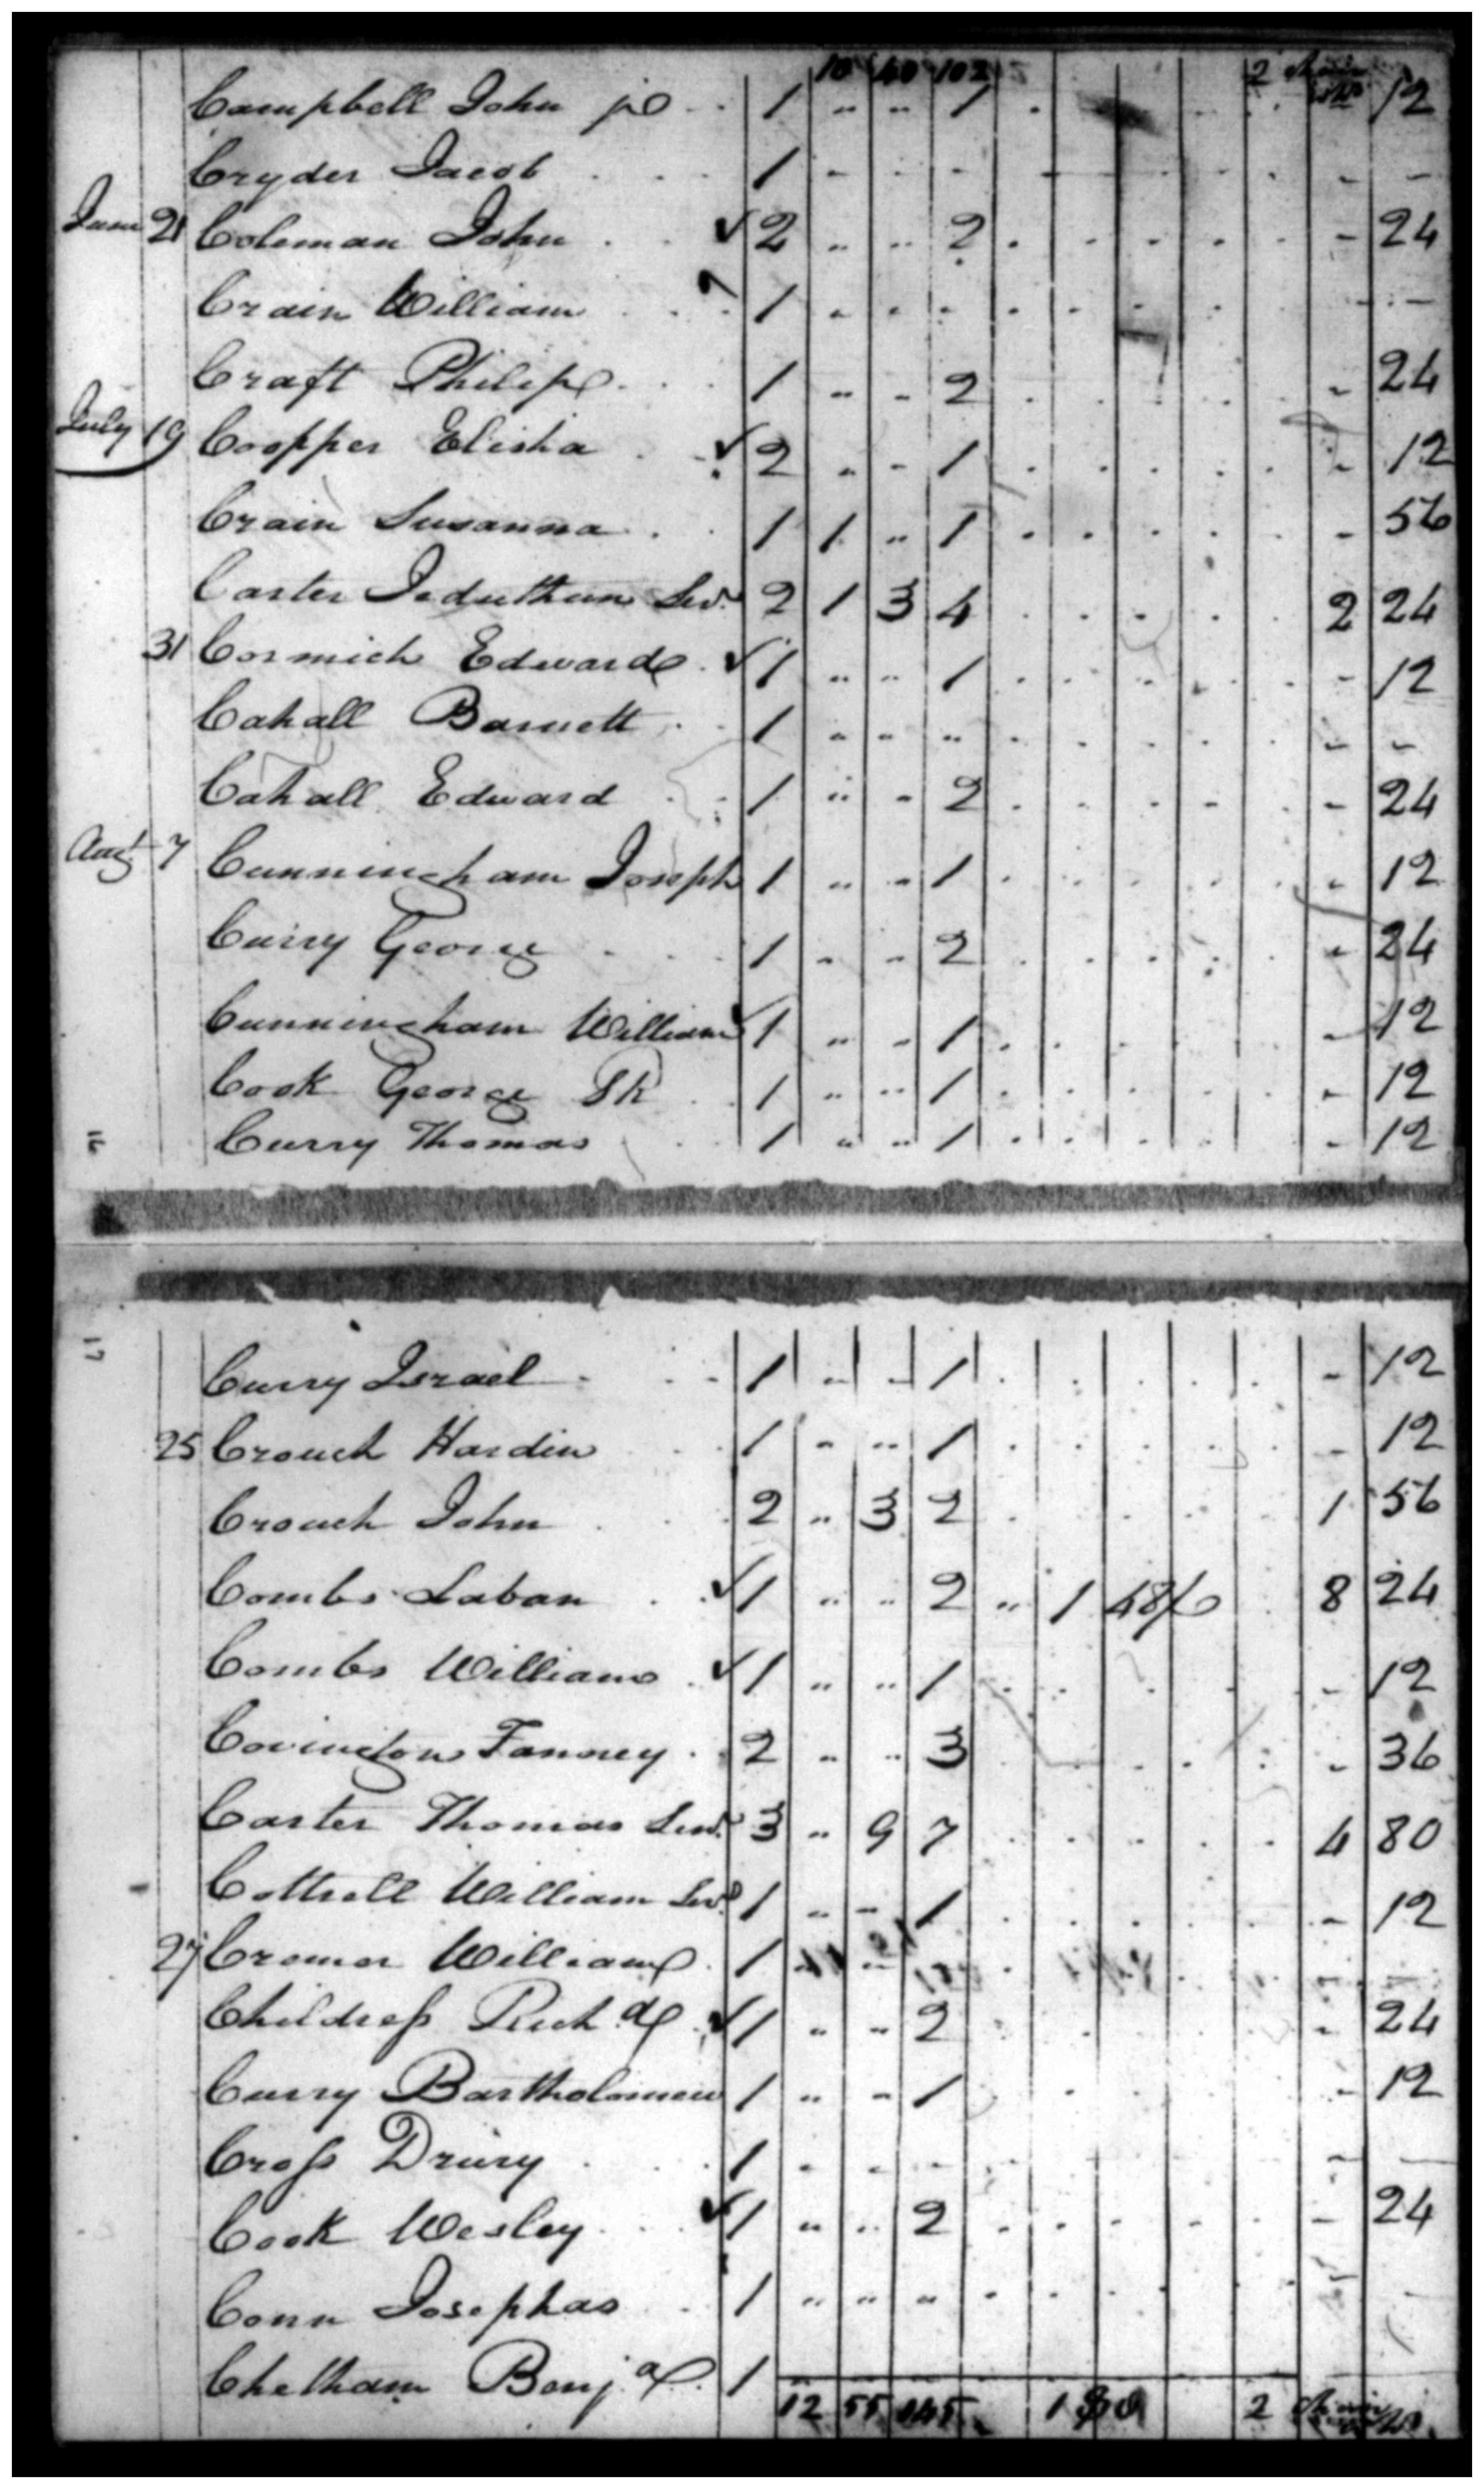 10 40 102 2
Campbell John jr 1 " " 1 . 12
Cryder Jacob 1 - - - - -
June 21 Coleman John ✓ 2 " " 2 - 24
Crain William 1 - - - -
Craft Philip 1 " - 2 - 24
July 19 Coopper Elisha ✓ 2 - - 1 - 12
Crain Susanna 1 1 " 1 - 56
Carter Jeduthun Senr. 2 1 3 4 2 24
31 Cormick Edward ✓ 1 " " 1 - 12
Cahall Barnett 1 " " " - -
Cahall Edward 1 " - 2 - 24
Augt 7 Cunningham Joseph 1 " - 1 - 12
Curry George 1 - - 2 - 24
Cunningham William ✓ 1 " - 1 - 12
Cook George 1 " " 1 - 12
16 Curry Thomas 1 " " 1 - 12
17
Curry Israel 1 - - 1 - 12
25 Crouch Hardin 1 - " 1 - 12
Crouch John 2 " 3 2 1 56
Combs Laban ✓ 1 " " 2 " 1 48/6 8 24
Combs William ✓ 1 " " 1 - 12
Covington Fanney 2 " " 3 - 36
Carter Thomas Senr. 3 " 9 7 4 80
Cottrell William Senr. 1 " - 1 - 12
27 Cromer William 1
Childress Richd ✓ 1 " - 2 - 24
Curry Bartholomew 1 " - 1 - 12
Cross Drury 1 - - - - -
Cook Wesley ✓ 1 " " 2 - 24
Conn Josephas 1 " " " -
Chetham Benja 1
12 55 145 1 2